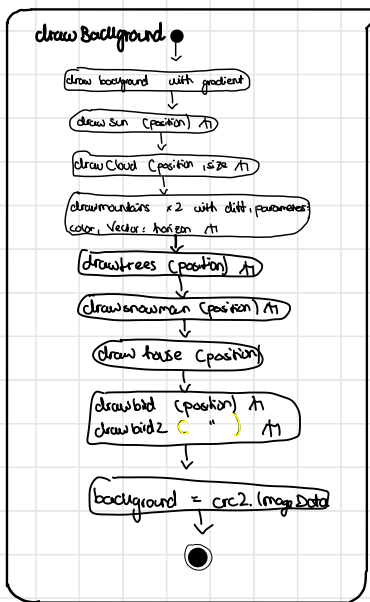 drawBackground
draw background with gradient
drawSun (position)
drawCloud (position, size
drawmountains x2 with diff. parameter:
color, Vector: horizon
drawtrees (position)
drawsnowman (position)
draw house (position)
drawbird (position)
drawbird2 ( " )
background = crc2.ImageData